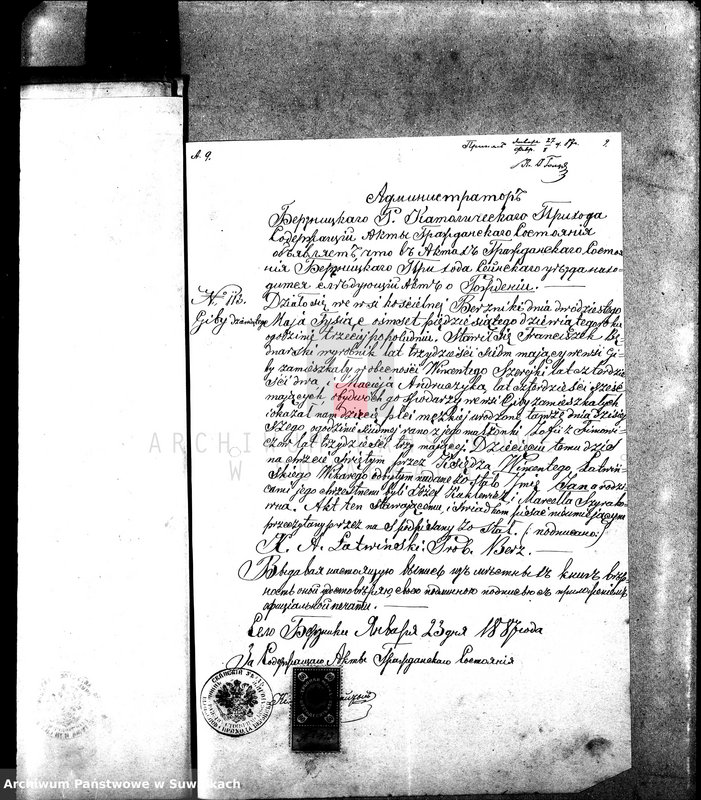 А. 9.
9.
Администраторъ
Бержницкаго Р. Католическаго Прихода
Содержащій Акты Гражданскаго Состоянія
объявляетъ, что въ Актахъ Гражданскаго Состоя-
нія Бержницкаго Прихода Сейнскаго уѣзда нахо-
дится слѣдующій Актъ о Рожденіи. —
№ 112.
Działo się we wsi kościelnej Berzniki dnia dwódziestego
Maja tysiąc ośmset piędziesiątego dziewiątego roku
godzinie trzeciej popołudniu. Stawił się Franciszek Bed
narski wyrobnik lat trzydzieści siedm mający wewsi Gi-
by zamieszkały w obecności Wincentego Szerejki lat czterdzie
ści dwa, i Macieja Andruczyka lat czterdzieści sześć
mających obydwóch gospodarzy wewsi Giby zamieszkałych
i okazał nam dziecię płci męzkiej urodzone tamże dnia dzisiej
szego o godzinie siódmej rano z jego małżonki
lat trzydzieści trzy mającej. Dziecięciu temu dziś
na chrzcie świętym przez Księdza Wincentego Łatwiń-
skiego Wikarego odbytym nadane zostało imie Jan a rodzi-
cami jego chrzestnemi byli Józef i Marcella
Akt ten stawającemu i świadkom pisać nieumiejącym
przeczytany przez nas podpisany został. (podpisano:)
X. A. Łatwiński Prob. Berz. —
Выдавая настоящую выпись изъ мѣстныхъ книгъ вѣр-
ность оной удостовѣряю своею подписью съ приложеніемъ
оффиціальной печати. —
Село Бержники Января 23 дня 1887 года
За Содержащаго Акты Гражданскаго Состоянія
Archiwum Państwowe w Suwałkach